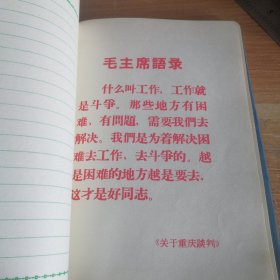 毛主席語录
什么叫工作，工作就
是斗爭。那些地方有困
难、有問題，需要我們去
解决。我們是为着解决困
难去工作、去斗爭的。越
是困难的地方越是要去，
这才是好同志。
《关于重庆談判》